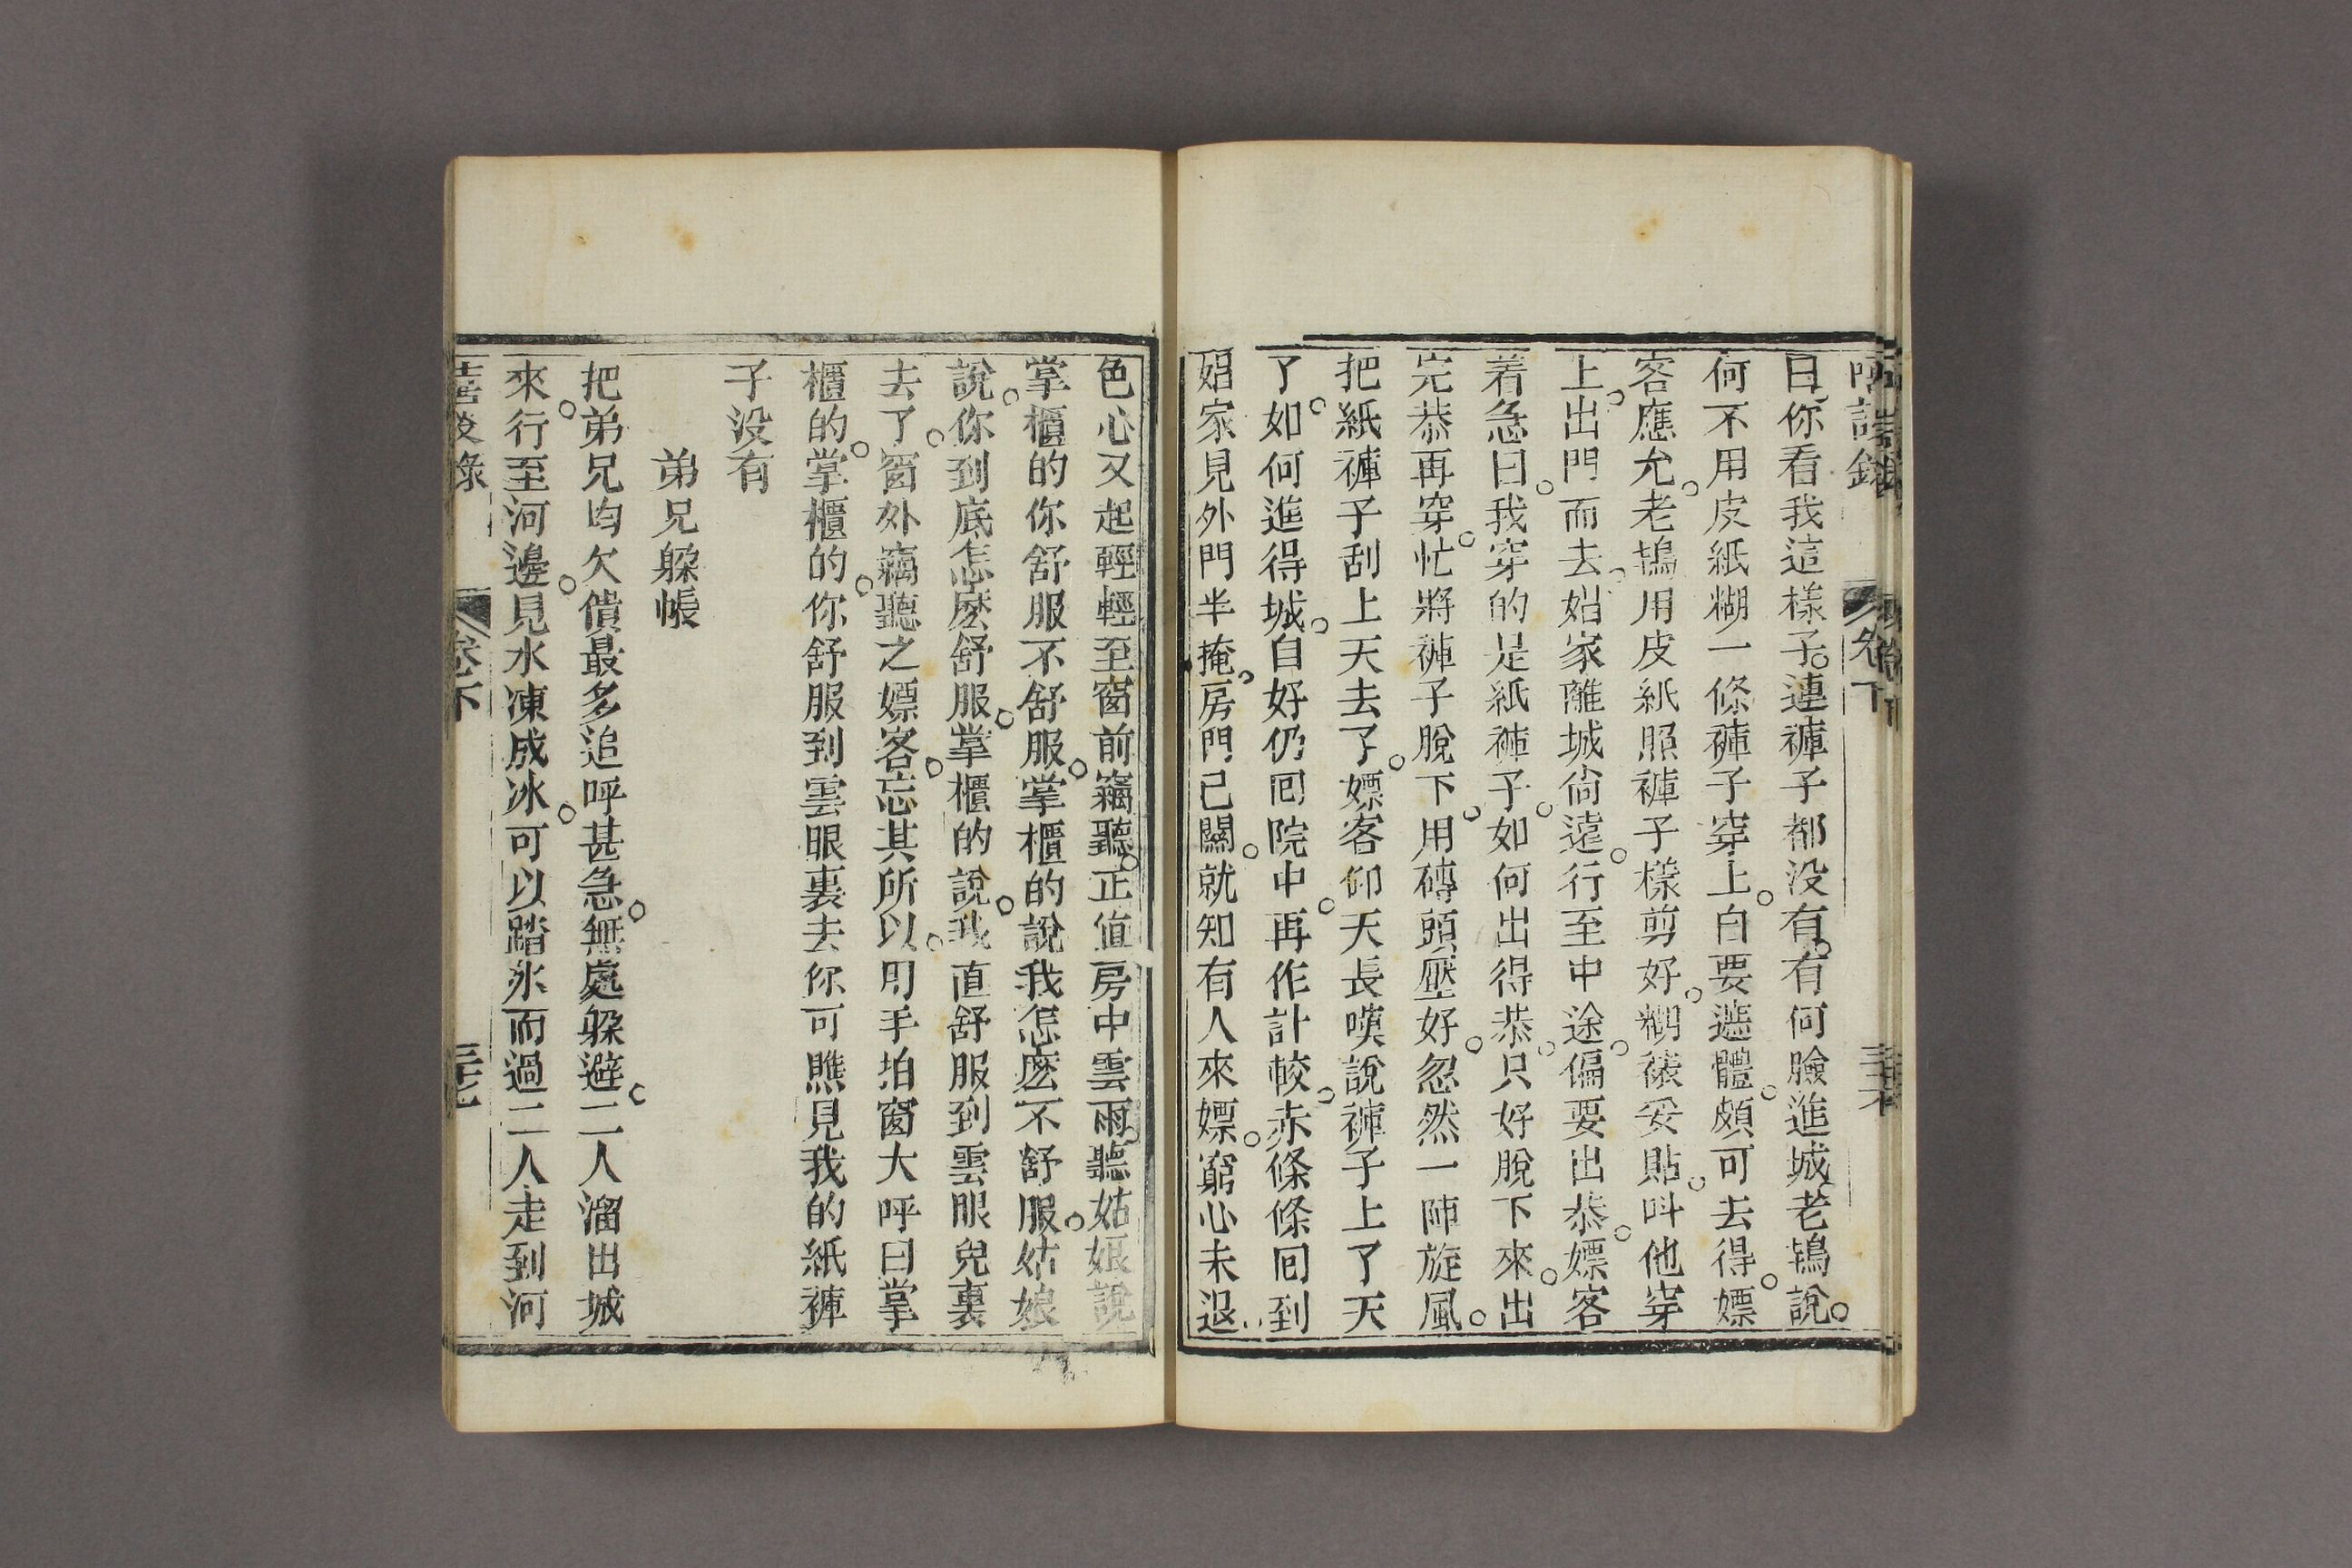 卷下
曰你看我這樣子。連褲子都没有。有何臉進城。老鴇說。
何不用皮紙糊一條褲子穿上。自要遮體。頗可去得。嫖
客應允。老鴇用皮紙照褲子樣剪好。糊裱妥貼。叫他穿
上。出門而去。娼家離城尙遠。行至中途。偏要出恭。嫖客
着急曰。我穿的是紙褲子。如何出得恭。只好脫下來。出
完恭再穿。忙將褲子脫下。用磚頭壓好。忽然一陣旋風。
把紙褲子刮上天去了。嫖客仰天長嘆說褲子上了天
了。如何進得城。自好仍囘院中。再作計較。赤條條囘到
娼家見外門半掩。房門已關。就知有人來嫖。窮心未退。
色心又起輕輕至窗前竊聽。正值房中雲雨。聽姑娘說
掌櫃的你舒服不舒服。掌櫃的說我怎麽不舒服。姑娘
說。你到底怎麽舒服。掌櫃的說。我直舒服到雲眼兒裏
去了。窗外竊聽之嫖客。忘其所以。用手拍窗大呼曰掌
櫃的。掌櫃的。你舒服到雲眼裏去你可瞧見我的紙褲
子没有
弟兄躱帳
把弟兄均欠債最多追呼甚急。無處躱避。二人溜出城
來。行至河邊。見水凍成冰。可以踏氷而過二人走到河
卷下
三七